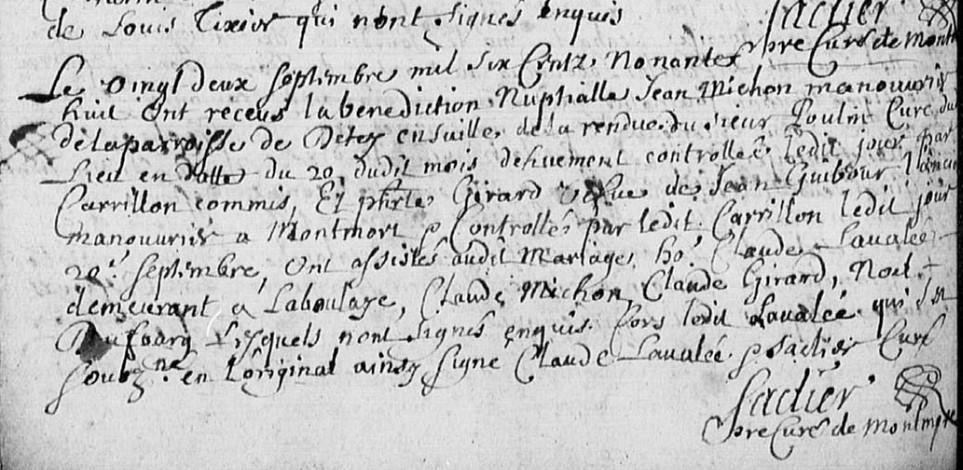 de Louis Tixier qui nont signés enquis
Sactier
pre Curé de Montm
Le vingt deux septembre mil six Centz Nonante
huit ont receus la benediction Nuptialle Jean Michon manouvrier
de la parroisse de ensuitte de la rendue du sieur Poulin Curé du
Lieu en datte du 20 dudit mois dehuement controllée ledit jour par
Carrillon commis, Et Girard vefve de Jean Guibour
manouvrier a Montmort & Controllée par ledit Carrillon ledit jour
20e septembre, Ont assistés audit Mariage ho. Claude Lavalée
demeurant a Laboulaye, Claude Michon, Claude Girard, Noel
Dufourg Lesquels nont signés enquis hors ledit Lavalée qui s'est
soubzne en Loriginal ainsy signe Claude Lavalée & Sactier Curé
Sactier
pre Curé de Montm